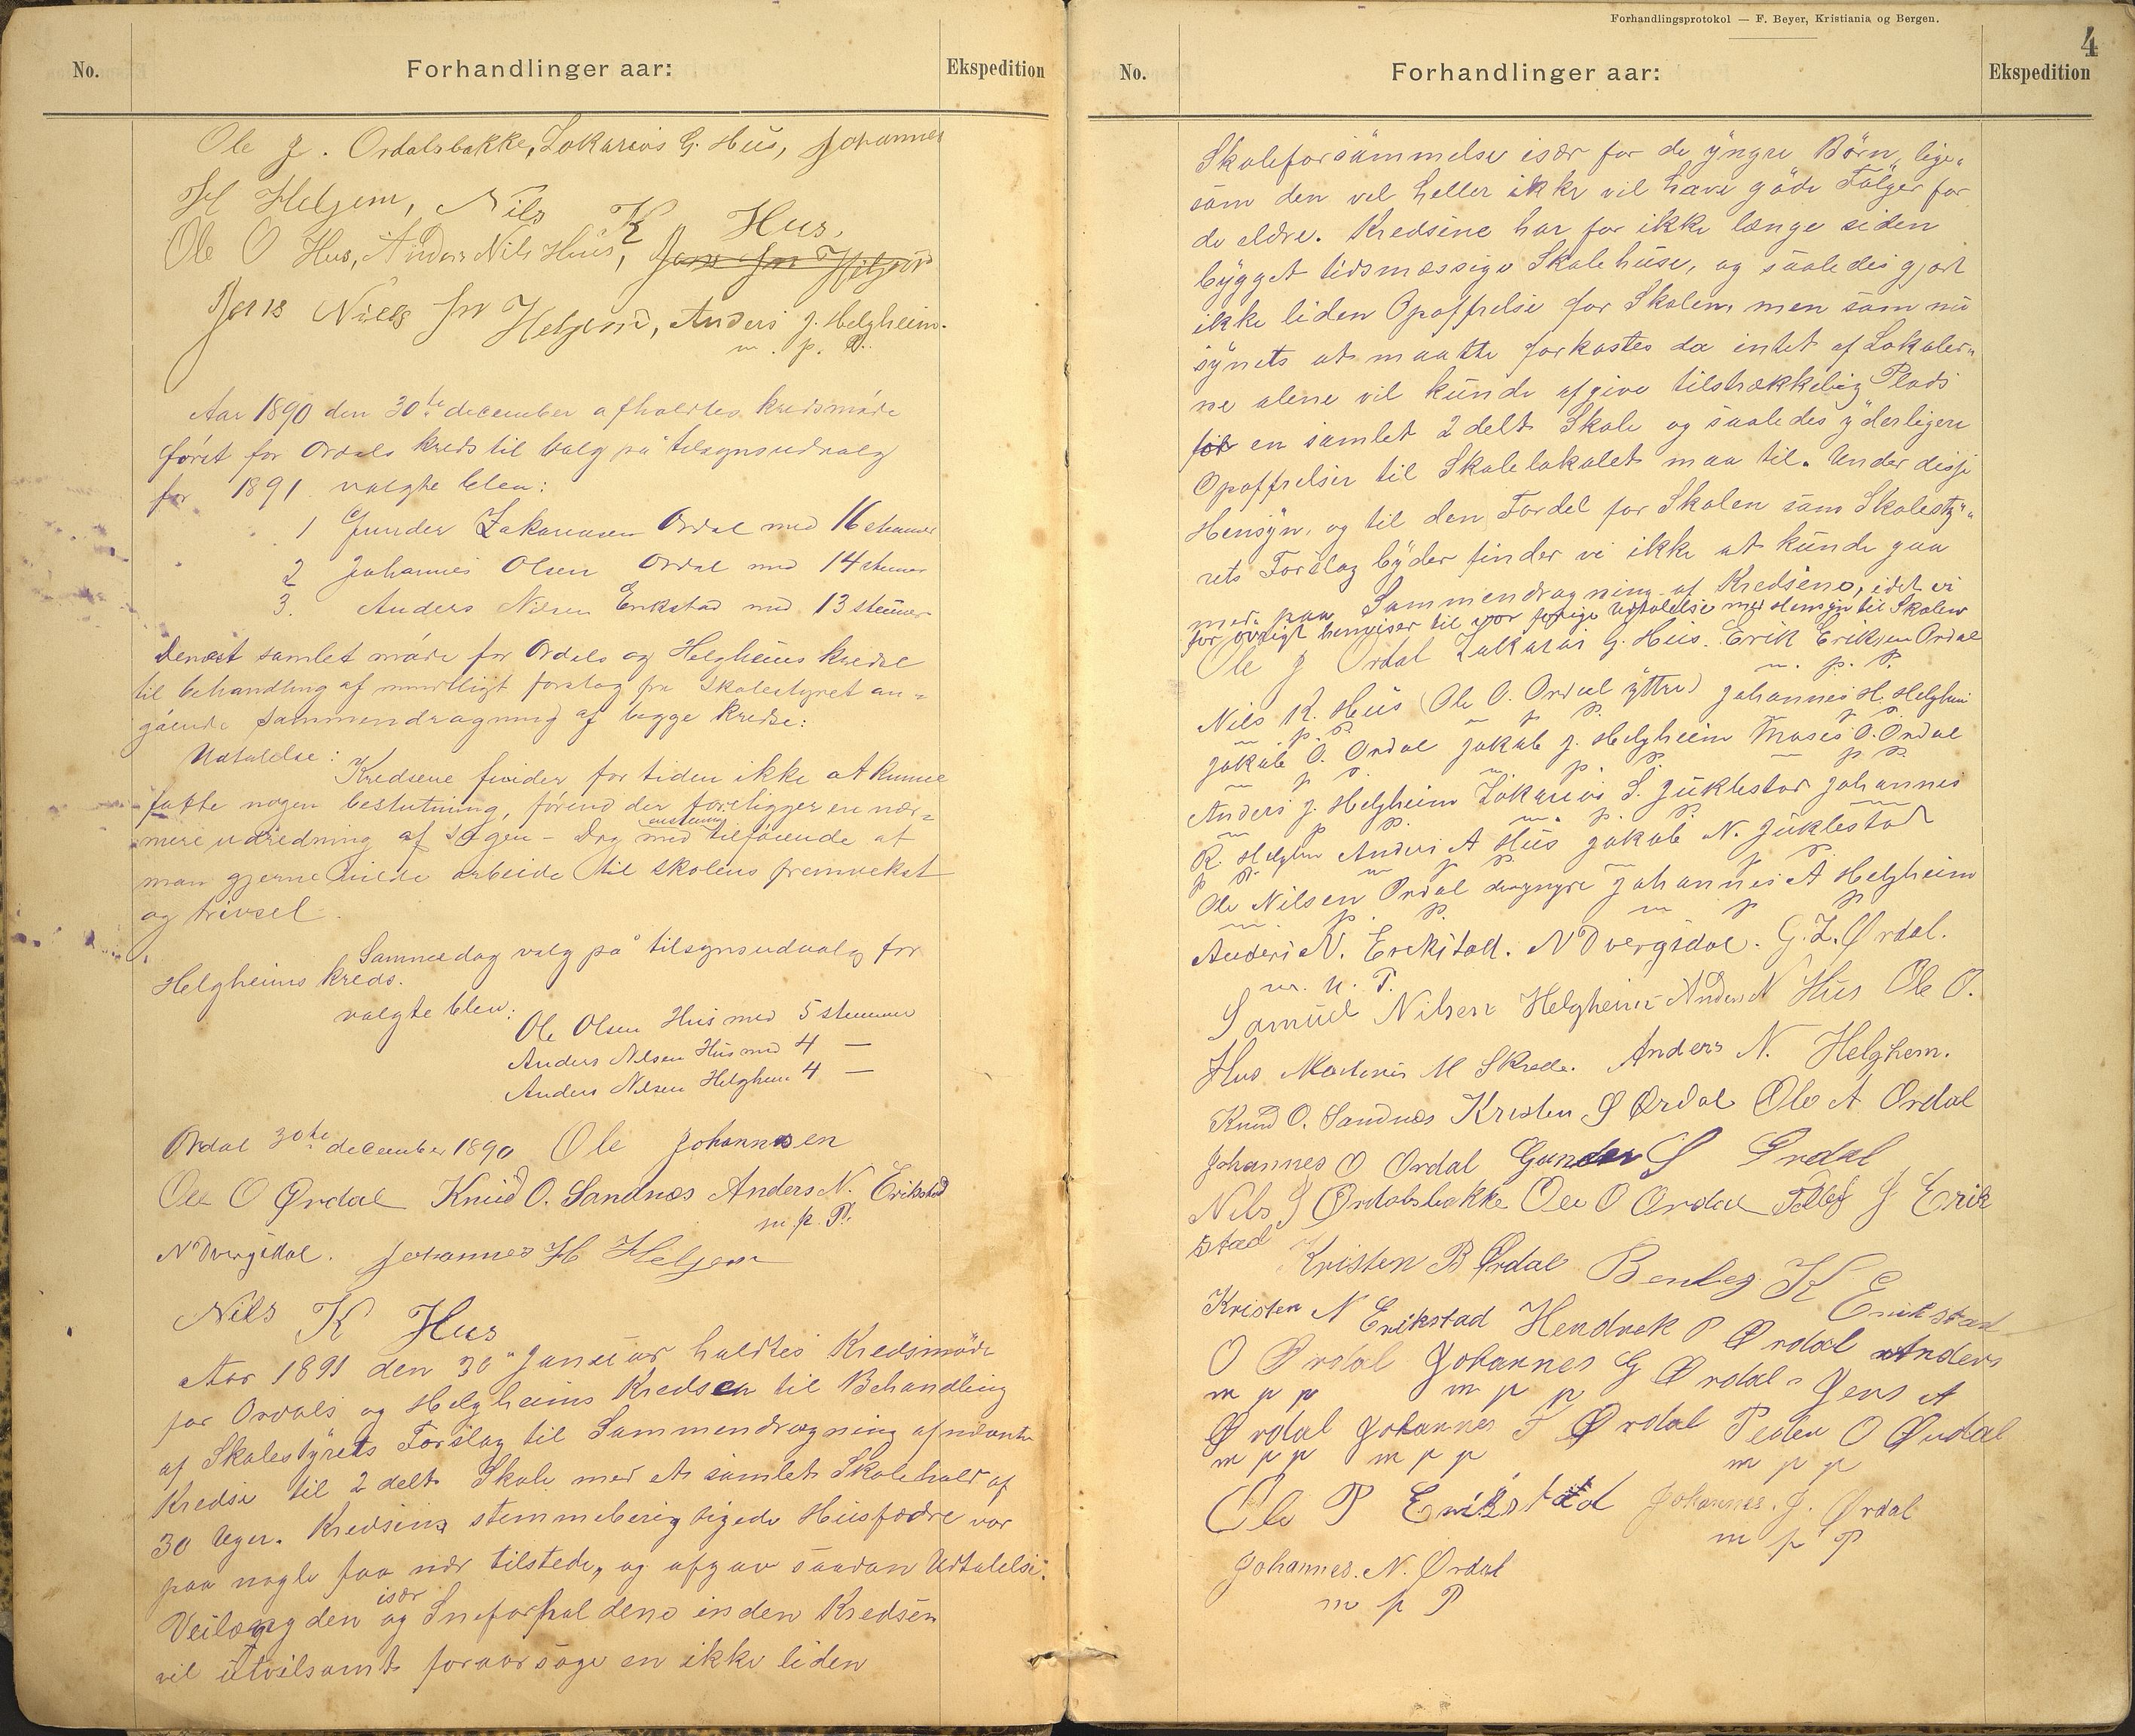 No.
Forhandlinger aar:
Ekspedition
Ole J. Ordalsbakke, Zakarias G. Hus, Johannes
H Helgem, Nils K Hus,
Ole O Hus, Anders Nils Hus,
Jens Niels fra Helgem, Anders J. Helgheim.
m. p. P.
Aar 1890 den 30te december afholdtes kredsmøde
først for Ordals kreds til valg på tilsynsudvalg
for 1891. valgte blev:
1 Gunder Zakariasen Ordal med 16 stemmer
2 Johannes Olsen Ordal med 14 stemmer
3. Anders Nilsen Erikstad med 13 stemmer
Dernæst samlet møde for Ordals og Helgheims kredse
til behandling af mundtligt forslag fra skolestyret an-
gående sammendragning af begge kredse:
Udtalelse: Kredsene finder for tiden ikke at kunne
fatte nogen beslutning, førend der foreligger en nær-
mere udredning af sagen - Dog med enstemmig tilføiende at
man gjerne vilde arbeide til skolens fremvekst
og trivsel.
Samme dag valg på tilsynsudvalg for
Helgheims kreds.
valgte blev: Ole Olsen Hus med 5 stemmer
Anders Nilsen Hus med 4 —
Anders Nilsen Helghem 4 —
Ordal 30te december 1890 Ole Johannesen
Ole O Ørdal Knud O. Sandnæs Anders N. Erikstad
m. p. P.
N Dvergsdal. Johannes H Helgem
Nils K Hus
Aar 1891 den 30" Januar holdtes Kredsmøde
for Ordals og Helgheims Kredser til Behandling
af Skolestyrets Forslag til Sammendragning af nævnte
Kredse til 2 delt Skole med et samlet Skolehold af
30 Uger. Kredsens stemmeberigtigede Husfædre var
paa nogle faa nær tilstede, og afgav saadan Udtalelse:
Veilængden især og Sneforholdene inden Kredsen
vil utvilsomt foraarsage en ikke liden
Forhandlingsprotokol — F. Beyer, Kristiania og Bergen.
4
No.
Forhandlinger aar:
Ekspedition
Skoleforsømmelse især for de yngre Børn, lige"
som den vel heller ikke vil have gode Følger for
de ældre. Kredsene har for ikke længe siden
bygget tidsmæssige Skolehuse, og saaledes gjort
ikke liden Opoffrelse for Skolen, men som nu
synets at maatte forkastes da intet af Lokaler"
ne alene vil kunde afgive tilstrækkelig Plads
for en samlet 2 delt Skole og saaledes yderligere
Opoffrelser til Skolelokalet maa til. Under disse
Hensyn, og til den Fordel for Skolen som Skolesty"
rets Forslag byder finder vi ikke at kunde gaa
med paa Sammendragning af Kredsene, idet vi
for øvrigt henviser til vor forrige Udtalelse med Hensyn til Skolen
Ole J Ordal Zakarias G. Hus. Erik Eriksen Ordal
m. p. P.
Nils K. Hus (Ole O. Ordal yttre) Johannes H. Helghem
m. p. P. m p P. p P.
Jakob O. Ordal Jakob J. Helgheim Moses O. Ordal
m p P. m p. P. m p P.
Anders J. Helgheim Zakarias S. Juklestad Johannes
m p P. m. p. P.
R. Helghem Anders A Hus Jakob N. Juklestad
p P. m p P. m p P.
Ole Nilsen Ordal den yngre Johannes A Helgheim
m. p. P. m p P
Anders N. Erikstad. N Dvergsdal. G. Z. Ørdal.
m. p. P.
Samuel Nilsen Helgheim Anders N Hus Ole O.
Hus M Skrede. Anders N. Helghem.
Knud O. Sandnæs Kristen S Ørdal Ole A Ordal
Johannes O Ordal Gunder S Ørdal
Nils J Ørdalsbakke Ole O Ordal J Erik
stad Kristen B Ørdal K Erikstad
Kristen N Erikstad Hendrek P Ørdal Anders
O Ørdal Johannes G Ørdal. Jens A
m p p m p p
Ørdal Johannes T Ørdal Peder O Ørdal
m p p m p p m p p
Ole P Erikstad Johannes. J. Ørdal
m p P
Johannes. N. Ørdal
m p P